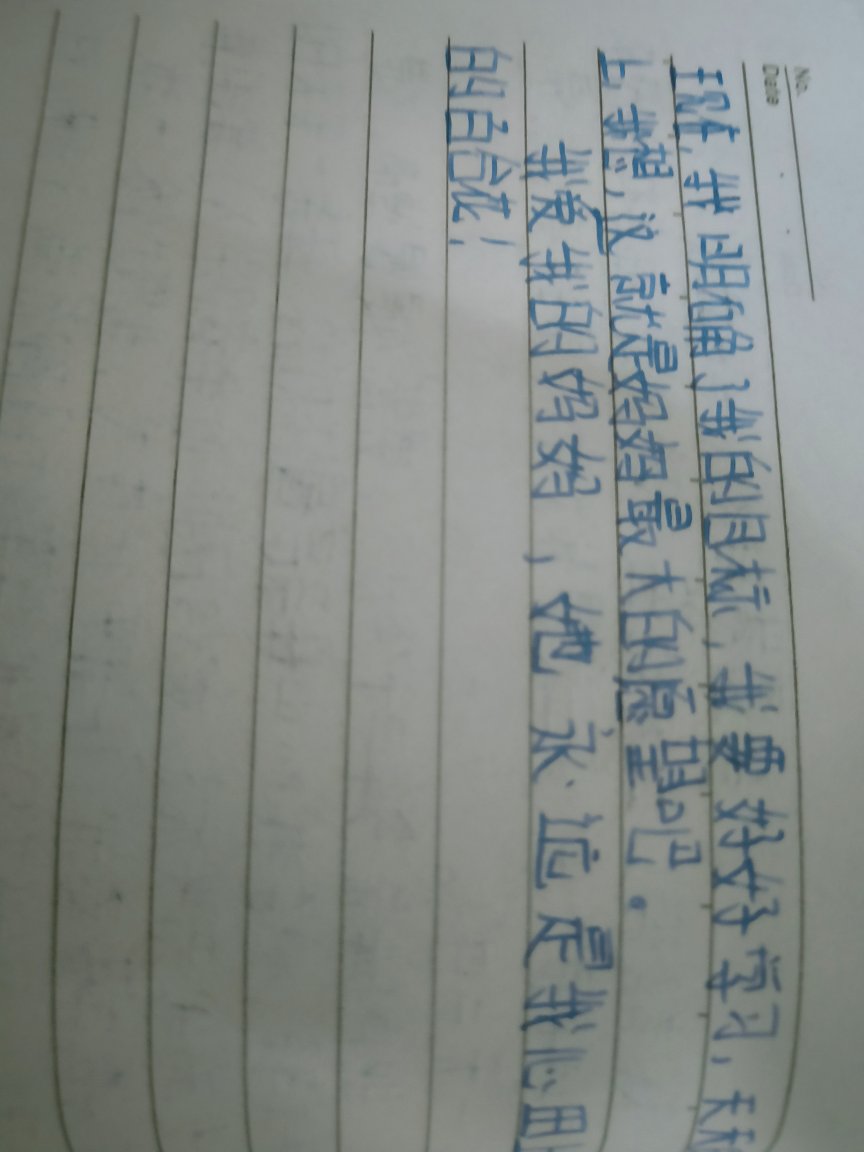 No.
Date
现在，我明确了我的目标，我要好好学习，天天
上，我想，这就是妈妈最大的愿望吧。
我爱我的妈妈，她永远是我心中
的百合花！